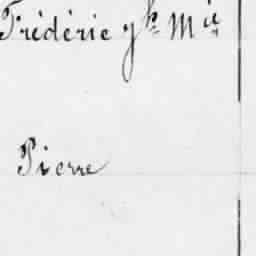 Frédéric Jph Mie
Pierre